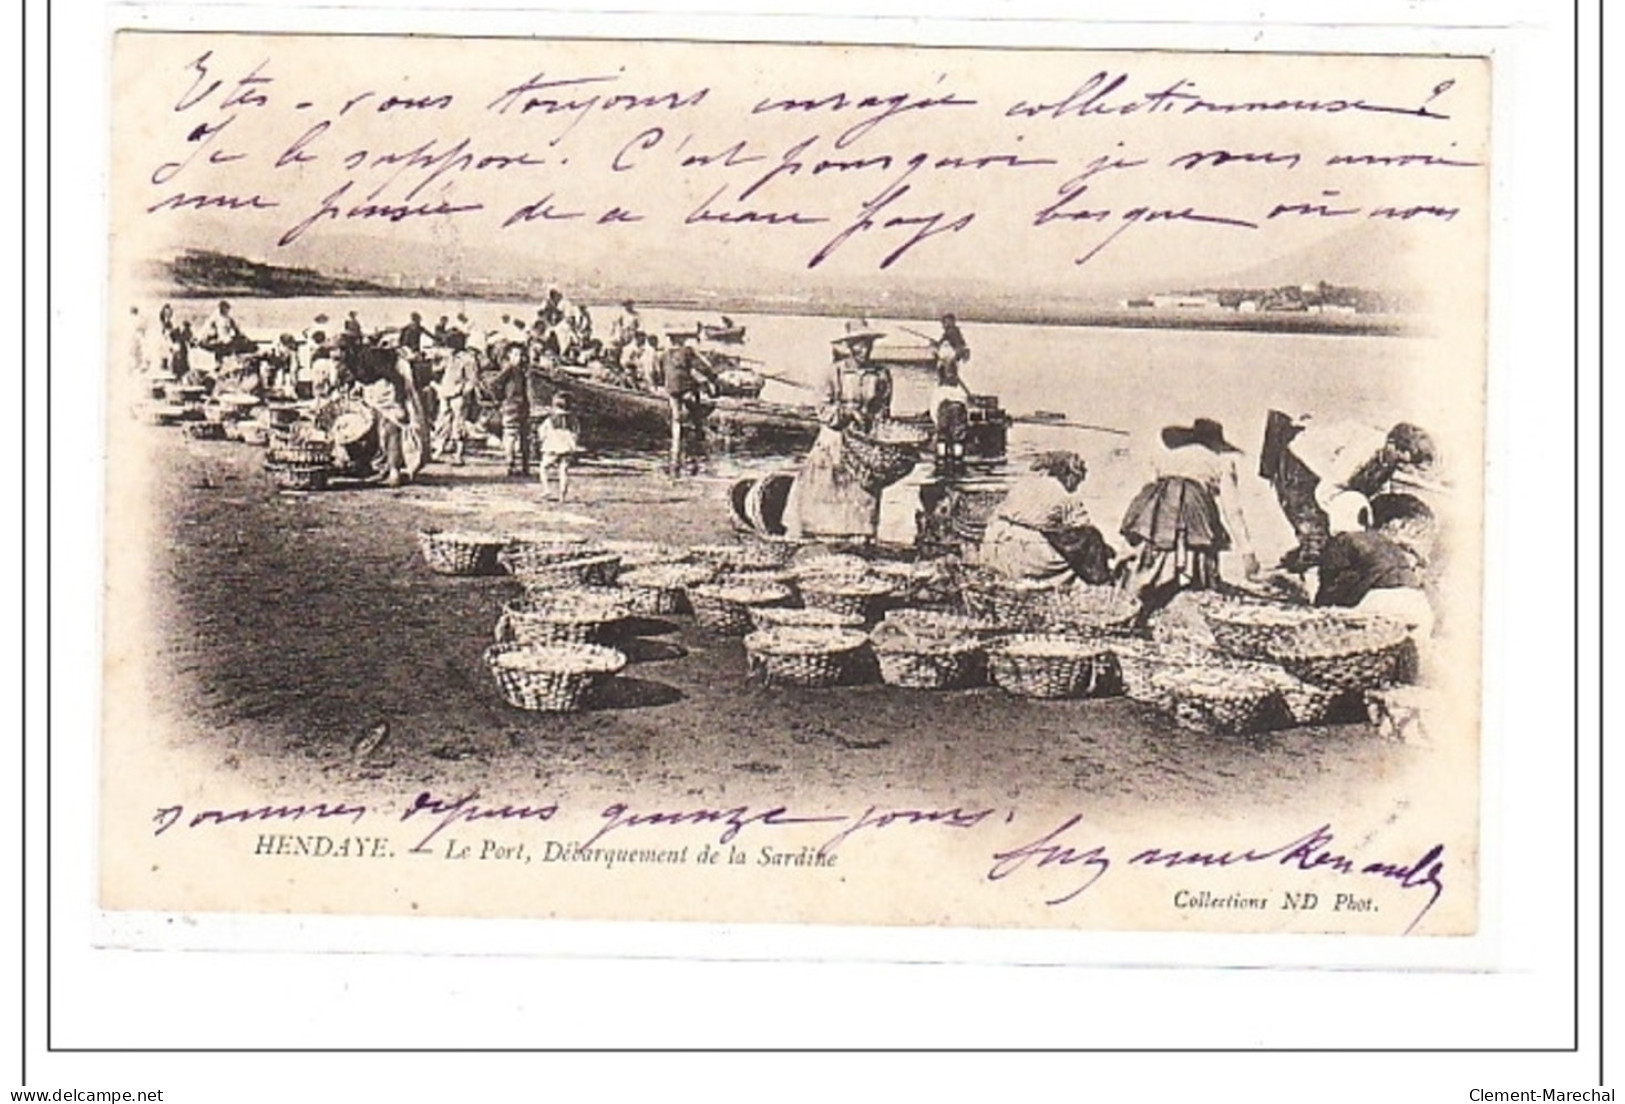 Etes-vous toujours enragée collectionneuse?
Je le suppose. C'est pourquoi je vous envoie
une pensée de ce beau pays basque où nous
sommes depuis quinze jours.
HENDAYE. — Le Port, Débarquement de la Sardine
Renault
Collections ND Phot.
delcampe.net
Clement-Marechal